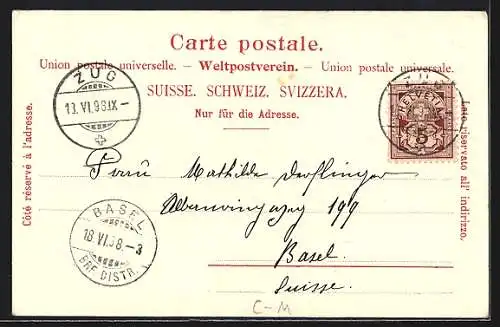 Carte postale.
Union postale universelle. – Weltpostverein. – Unione postale universale.
SUISSE. SCHWEIZ. SVIZZERA.
Nur für die Adresse.
Côté réservé à l'adresse.
Lato riservato all' indirizzo.
ZUG
13.VI.98.IX–
HELVETIA
5
Mathilde
199
Basel.
Suisse.
BASEL
18.VI.98.–3
BRF. DISTR.
C-M